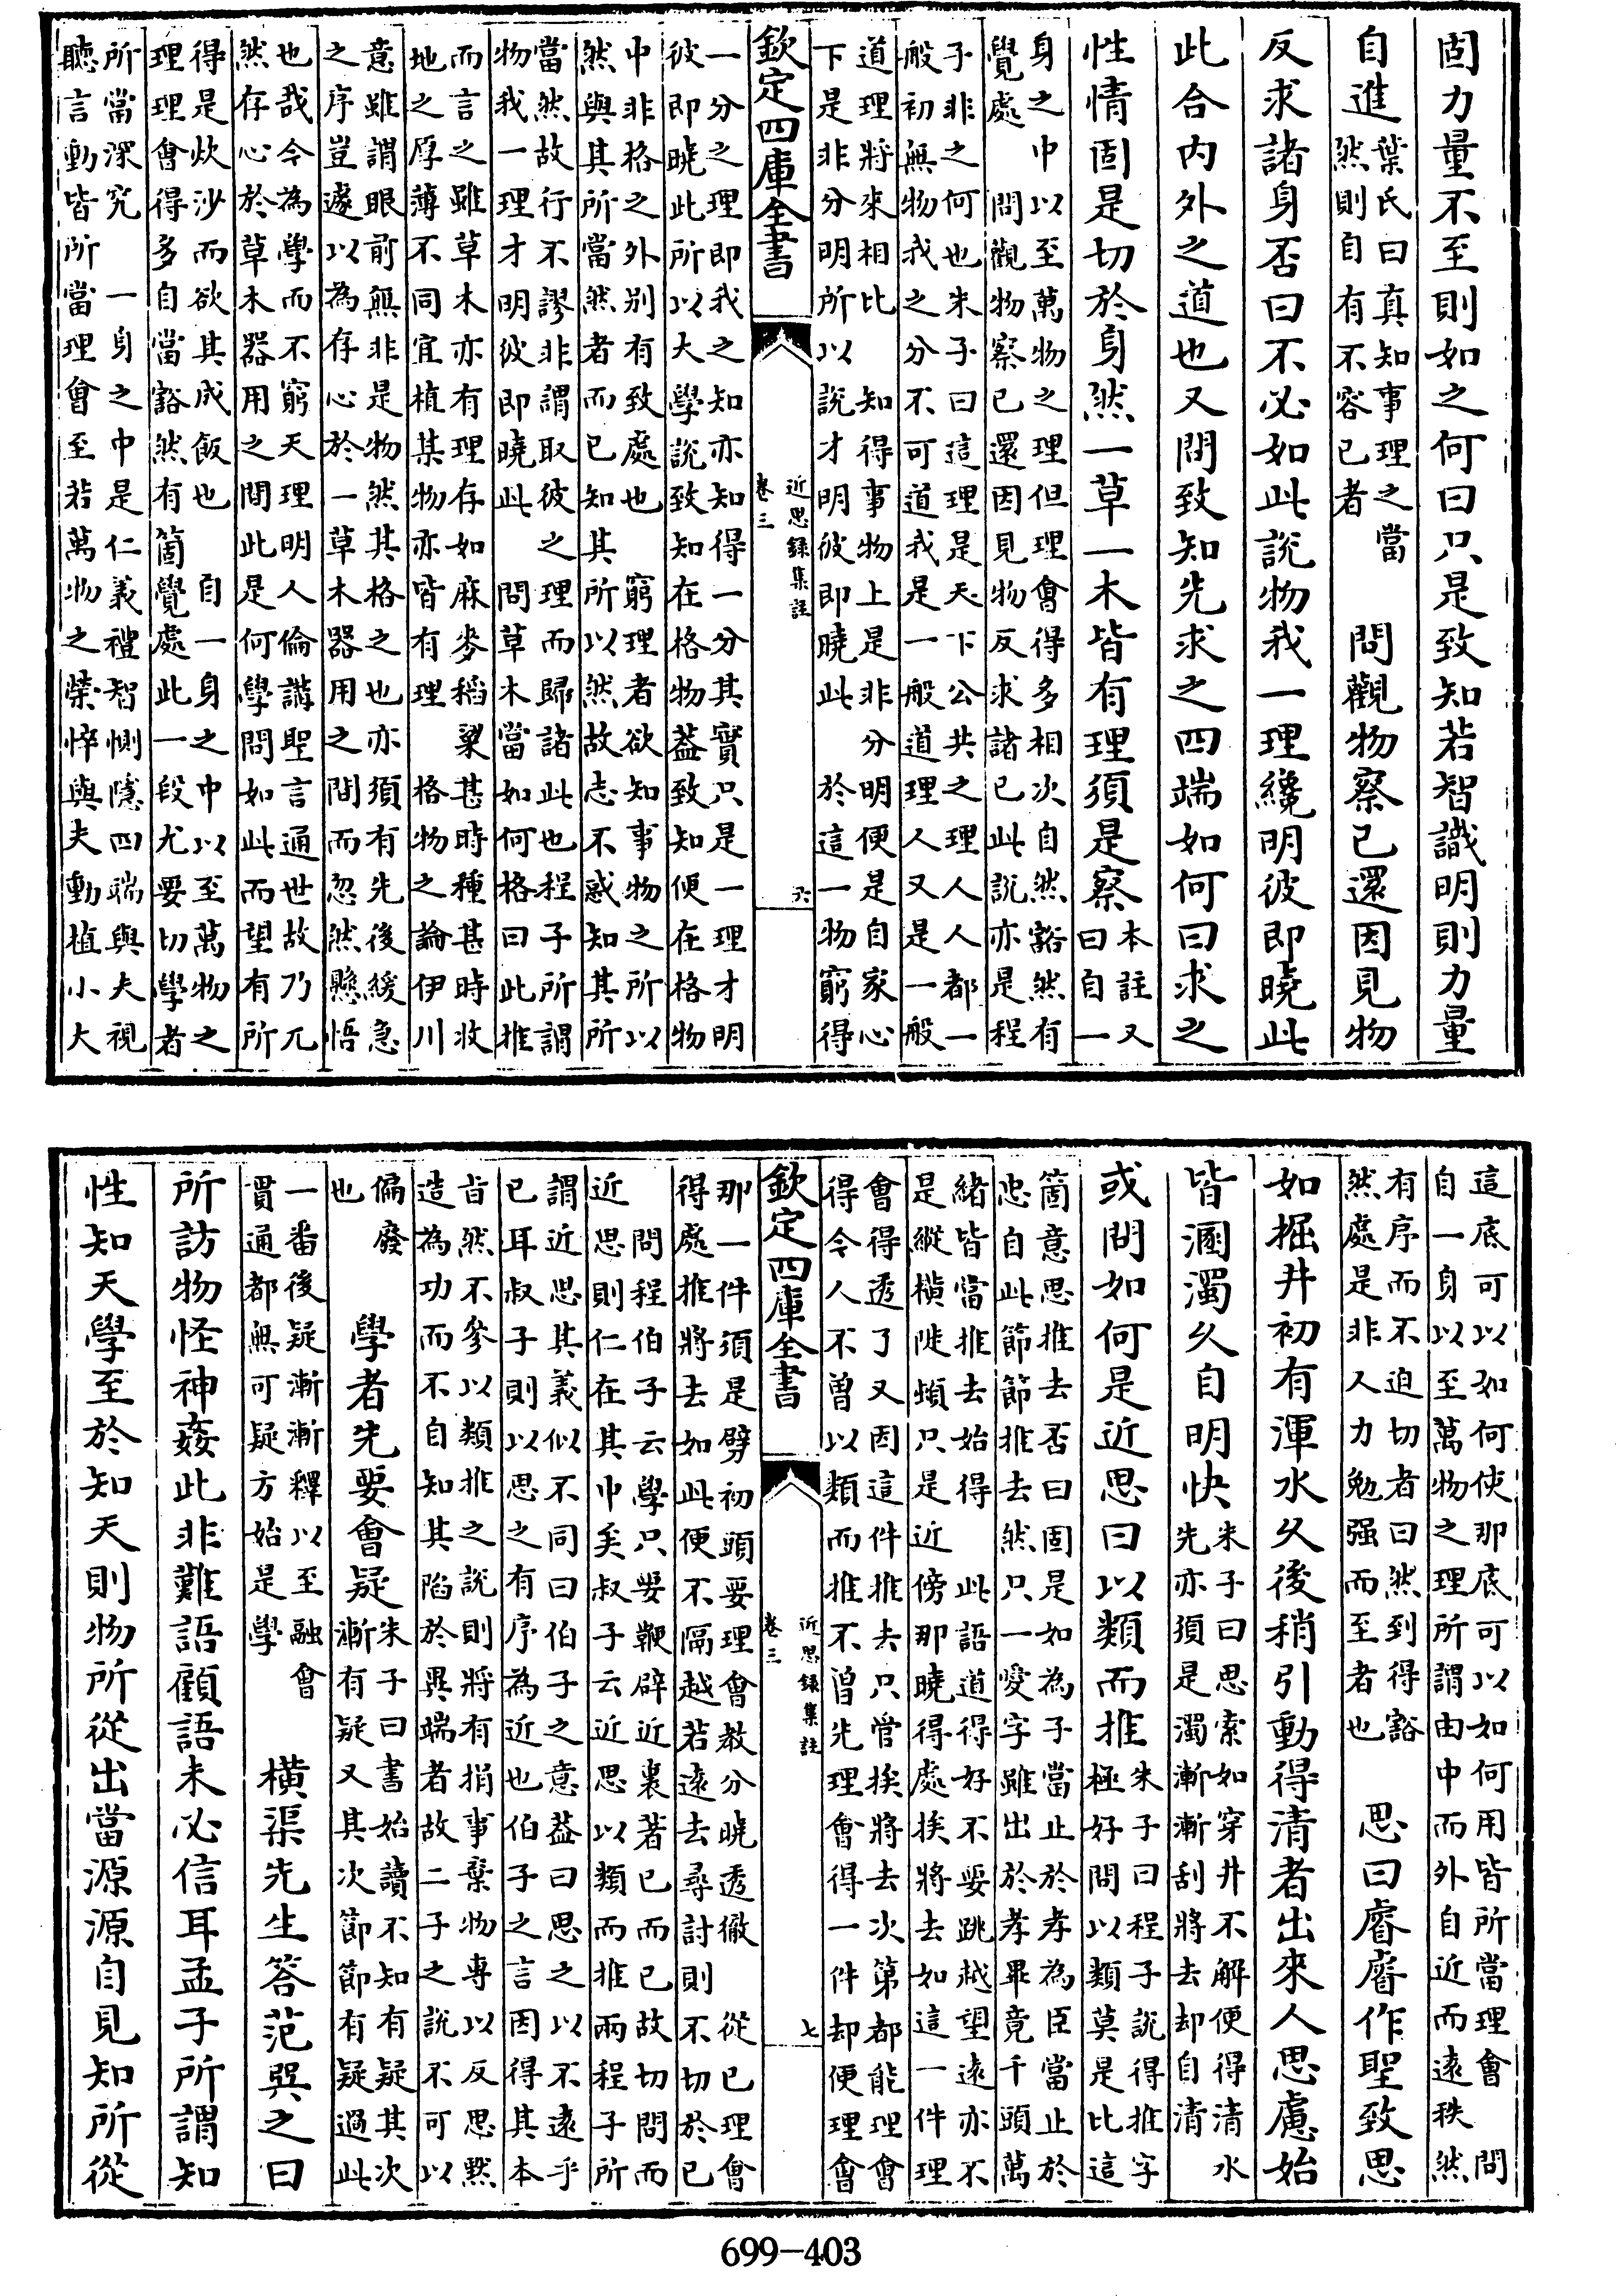 固力量不至則如之何曰只是致知若智識明則力量
自進葉氏曰真知事理之當然則自有不容已者 問觀物察已還因見物
反求諸身否曰不必如此說物我一理纔明彼即曉此
此合內外之道也又問致知先求之四端如何曰求之
性情固是切於身然一草一木皆有理須是察本註又曰自一
身之中以至萬物之理但理會得多相次自然豁然有
覺處 問觀物察已還因見物反求諸已此說亦是程
子非之何也朱子曰這理是天下公共之理人人都一
般初無物我之分不可道我是一般道理人又是一般
道理將來相比 知得事物上是非分明便是自家心
下是非分明所以說才明彼即曉此 於這一物窮得
欽定四庫全書 近思録集註 卷三 六
一分之理即我之知亦知得一分其實只是一理才明
彼即曉此所以大學說致知在格物葢致知便在格物
中非格之外别有致處也 窮理者欲知事物之所以
然與其所當然者而已知其所以然故志不惑知其所
當然故行不謬非謂取彼之理而歸諸此也程子所謂
物我一理才明彼即曉此 問草木當如何格曰此推
而言之雖草木亦有理存如麻麥稻粱甚時種甚時收
地之厚薄不同宜植某物亦皆有理 格物之論伊川
意雖謂眼前無非是物然其格之也亦須有先後緩急
之序豈遽以為存心於一草木器用之間而忽然懸悟
也哉今為學而不窮天理明人倫講聖言通世故乃兀
然存心於草木器用之間此是何學問如此而望有所
得是炊沙而欲其成飯也 自一身之中以至萬物之
理理會得多自當豁然有箇覺處此一段尤要切學者
所當深究 一身之中是仁義禮智惻隱四端與夫視
聽言動皆所當理會至若萬物之榮悴與夫動植小大
這底可以如何使那底可以如何用皆所當理會 問
自一身以至萬物之理所謂由中而外自近而遠秩然
有序而不迫切者曰然到得豁
然處是非人力勉强而至者也 思曰睿睿作聖致思
如掘井初有渾水久後稍引動得清者出來人思慮始
皆溷濁久自明快朱子曰思索如穿井不解便得清水先亦須是濁漸漸刮將去却自清
或問如何是近思曰以類而推朱子曰程子說得推字極好問以類莫是比這
箇意思推去否曰固是如為子當止於孝為臣當止於
忠自此節節推去然只一愛字雖出於孝畢竟千頭萬
緒皆當推去始得 此語道得好不要跳越望遠亦不
是縱橫陡頓只是近傍那曉得處挨將去如這一件理
會得透了又因這件推去只管挨將去次第都能理會
得令人不曾以類而推不曾先理會得一件却便理會
欽定四庫全書 近思録集註 卷三 七
那一件須是劈初頭要理會教分曉透徹 從已理會
得處推將去如此便不隔越若遠去尋討則不切於已
問程伯子云學只要鞭辟近裏著已而已故切問而
近思則仁在其中矣叔子云近思以類而推兩程子所
謂近思其義似不同曰伯子之意葢曰思之以不遠乎
已耳叔子則以思之有序為近也伯子之言因得其本
旨然不參以類推之說則將有捐事棄物專以反思黙
造為功而不自知其陷於異端者故二子之說不可以
偏廢也 學者先要會疑朱子曰書始讀不知有疑其次漸有疑又其次節節有疑過此
一番後疑漸漸釋以至融會貫通都無可疑方始是學 橫渠先生答范巽之曰
所訪物怪神姦此非難語顧語未必信耳孟子所謂知
性知天學至於知天則物所從出當源源自見知所從
699-403